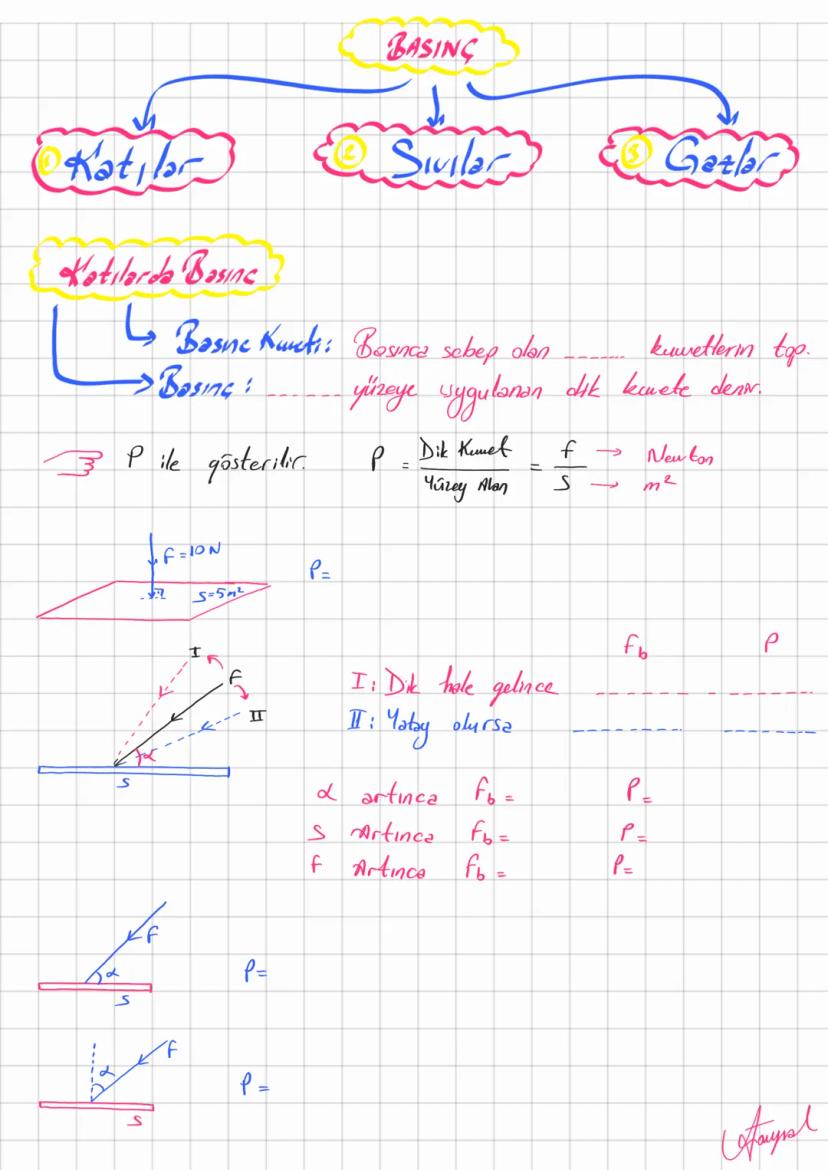 BASINÇ
① Katılar ② Sıvılar ③ Gazlar
Katılarda Basınç
Basınç Kuvveti: Basınca sebep olan ------ kuvvetlerin top.
Basınç: ------ yüzeye uygulanan dik kuvvete denir.
P ile gösterilir. P = Dik Kuvvet / Yüzey Alan = f / S → Newton → m²
f=10N
S=5m²
P=
Fb P
I II f α S
I: Dik hale gelince ------ ------
II: Yatay olursa ------ ------
α artınca fb = P=
S Artınca fb = P=
f Artınca fb = P=
f α S P=
f α S P=